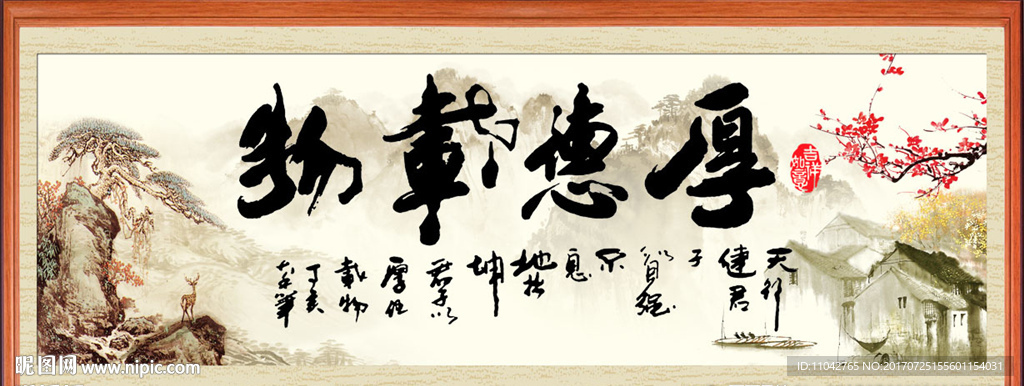 厚德載物
吉祥如意
天行
健君
子
以自强
不
息
地势
坤
君子以
厚德
載物
丁亥
年筆
昵图网 www.nipic.com
ID:11042765 NO:20170725155601154031